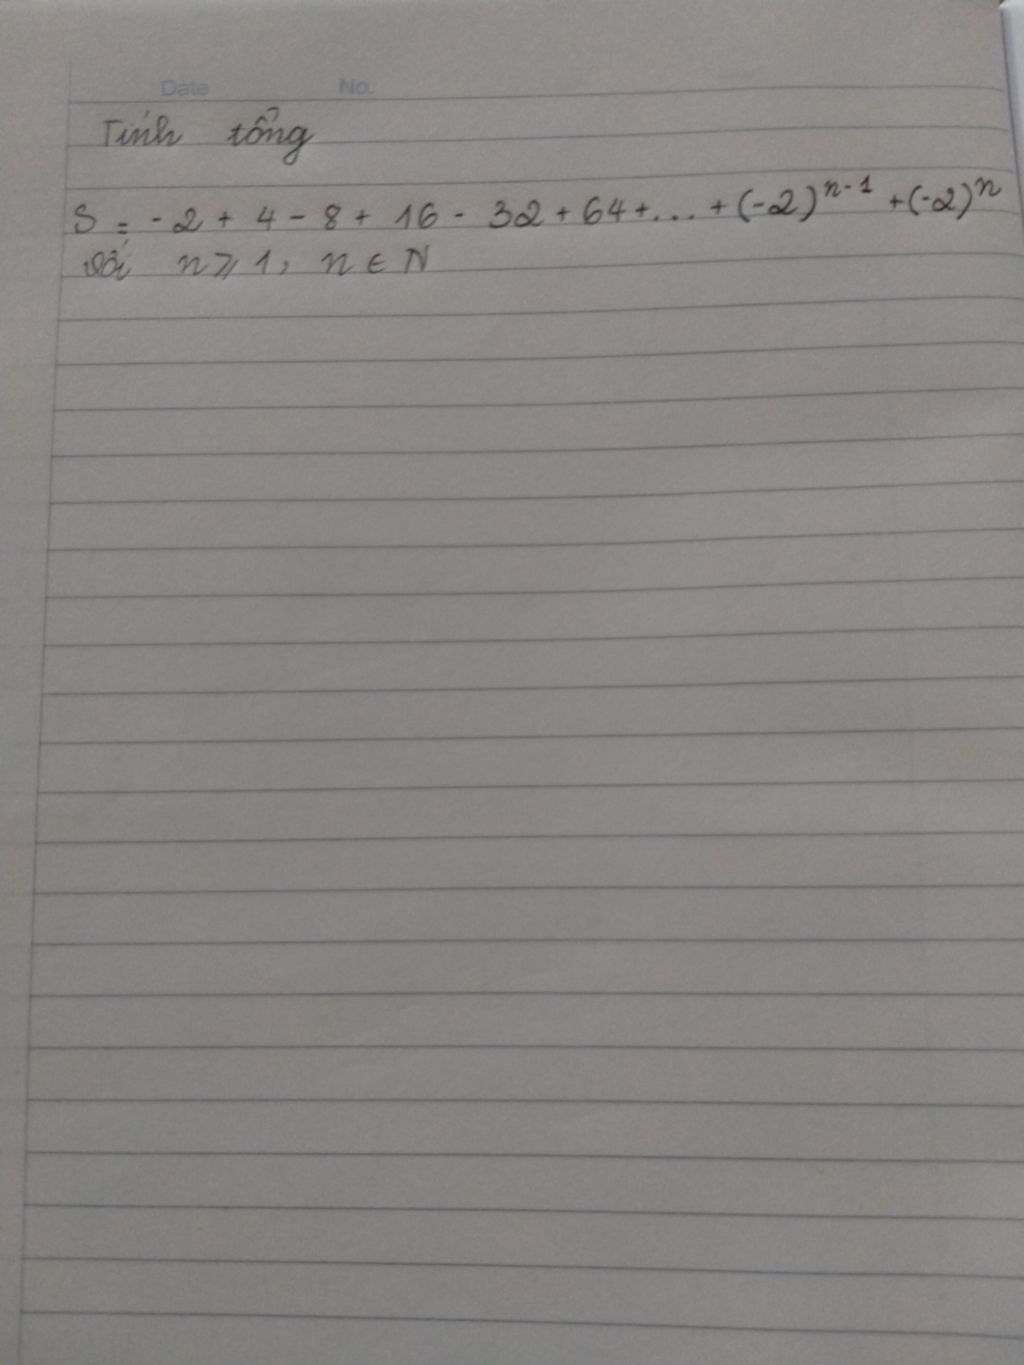 Date No.
Tính tổng
S = -2 + 4 - 8 + 16 - 32 + 64 + ... + (-2)^{n-1} + (-2)^n
với n ⩾ 1, n ∈ N